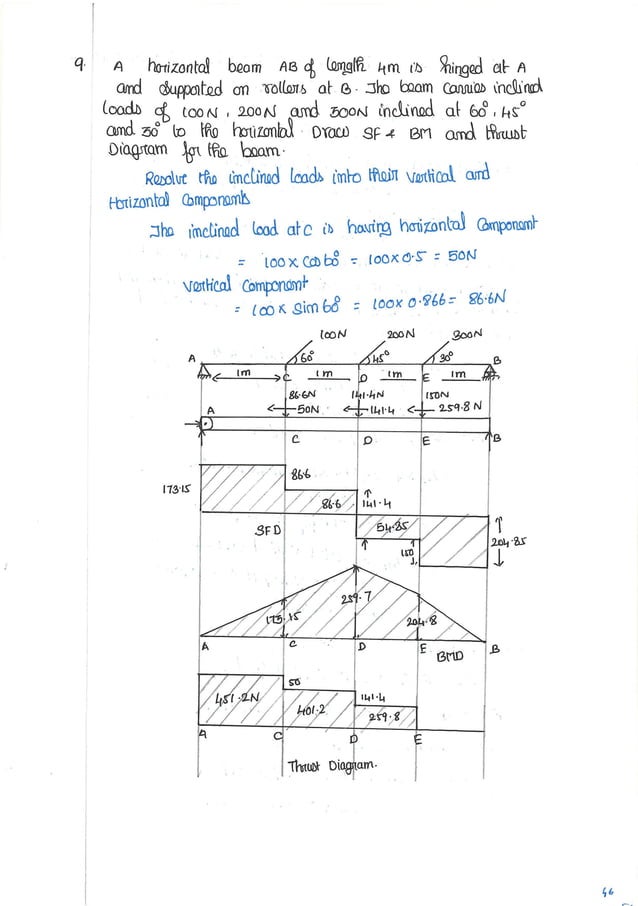 9. A horizontal beam AB of length 4m is hinged at A
and supported on rollers at B. The beam carries inclined
loads of 100N, 200N and 300N inclined at 60°, 45°
and 30° to the horizontal. Draw SF & BM and thrust
Diagram for the beam.
Resolve the inclined loads into their vertical and
Horizontal Components
The inclined load at C is having horizontal Component
= 100 x Cos 60° = 100 x 0.5 = 50N
Vertical Component
= 100 x Sin 60° = 100 x 0.866 = 86.6N
100N 200N 300N
A 60° 45° 30° B
1m C 1m D 1m E 1m
86.6N 141.4N 150N
A 50N 141.4 259.8 N
C D E B
86.6
173.15 86.6 141.4
SFD 54.85
150 204.85
259.7
173.15 204.8
A C D E B
BMD
50
451.2N 401.2 141.4
259.8
A C D E
Thrust Diagram.
46